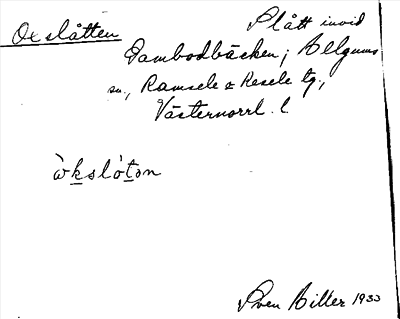 Oxslåtten
Slått invid
Gambodbäcken; Ällgums
sn, Ramsele & Resele tg,
Västernorrl. l.
ò̀ksló̀tən
Sven Biller 1933